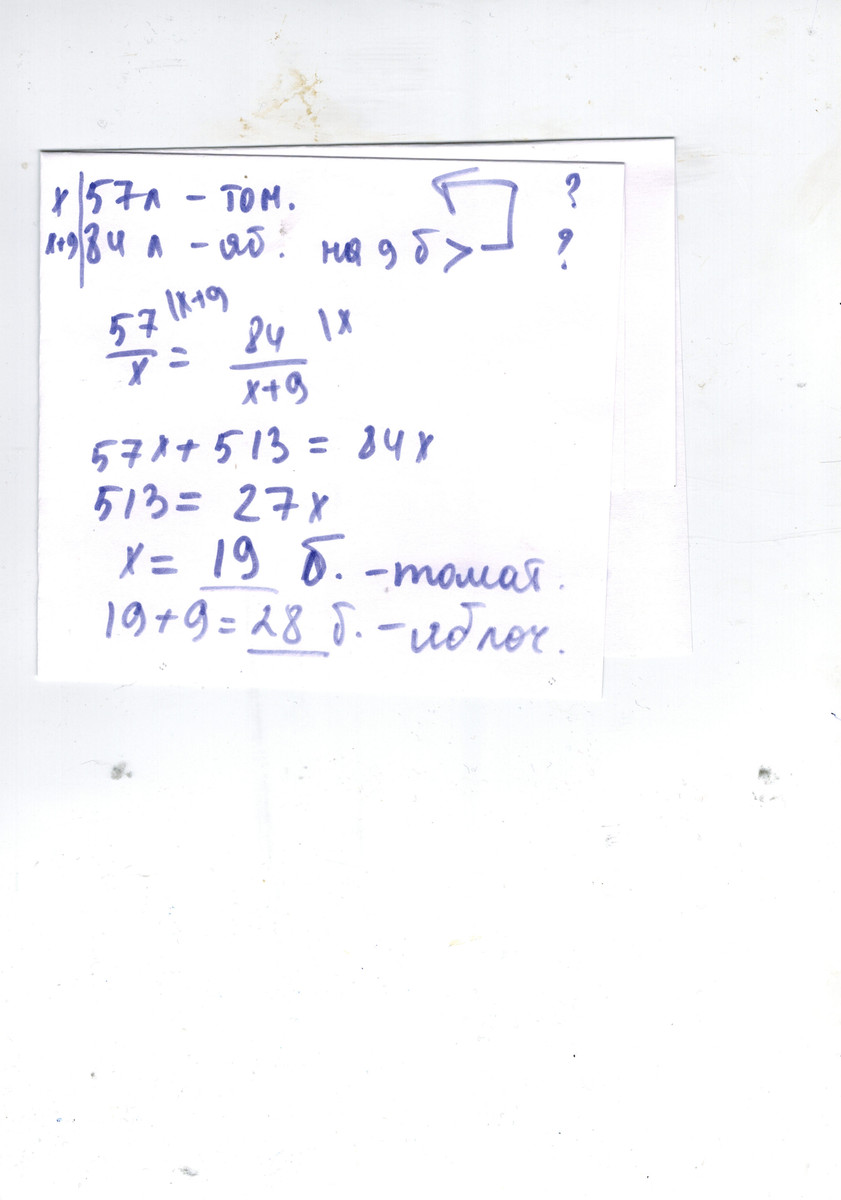 x | 57л - том. ?
x+9 | 84 л - яб. на 9 б > ?
57/x |x+9 = 84/x+9 |x
57x + 513 = 84x
513 = 27x
x = 19 б. - томат.
19 + 9 = 28 б. - яблоч.